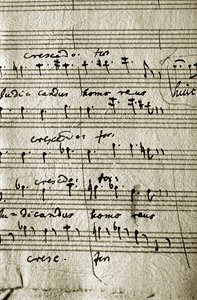 cresc: for
judicandus homo reus huic
cresc: for.
cresc: for:
judicandus homo reus
cresc. for